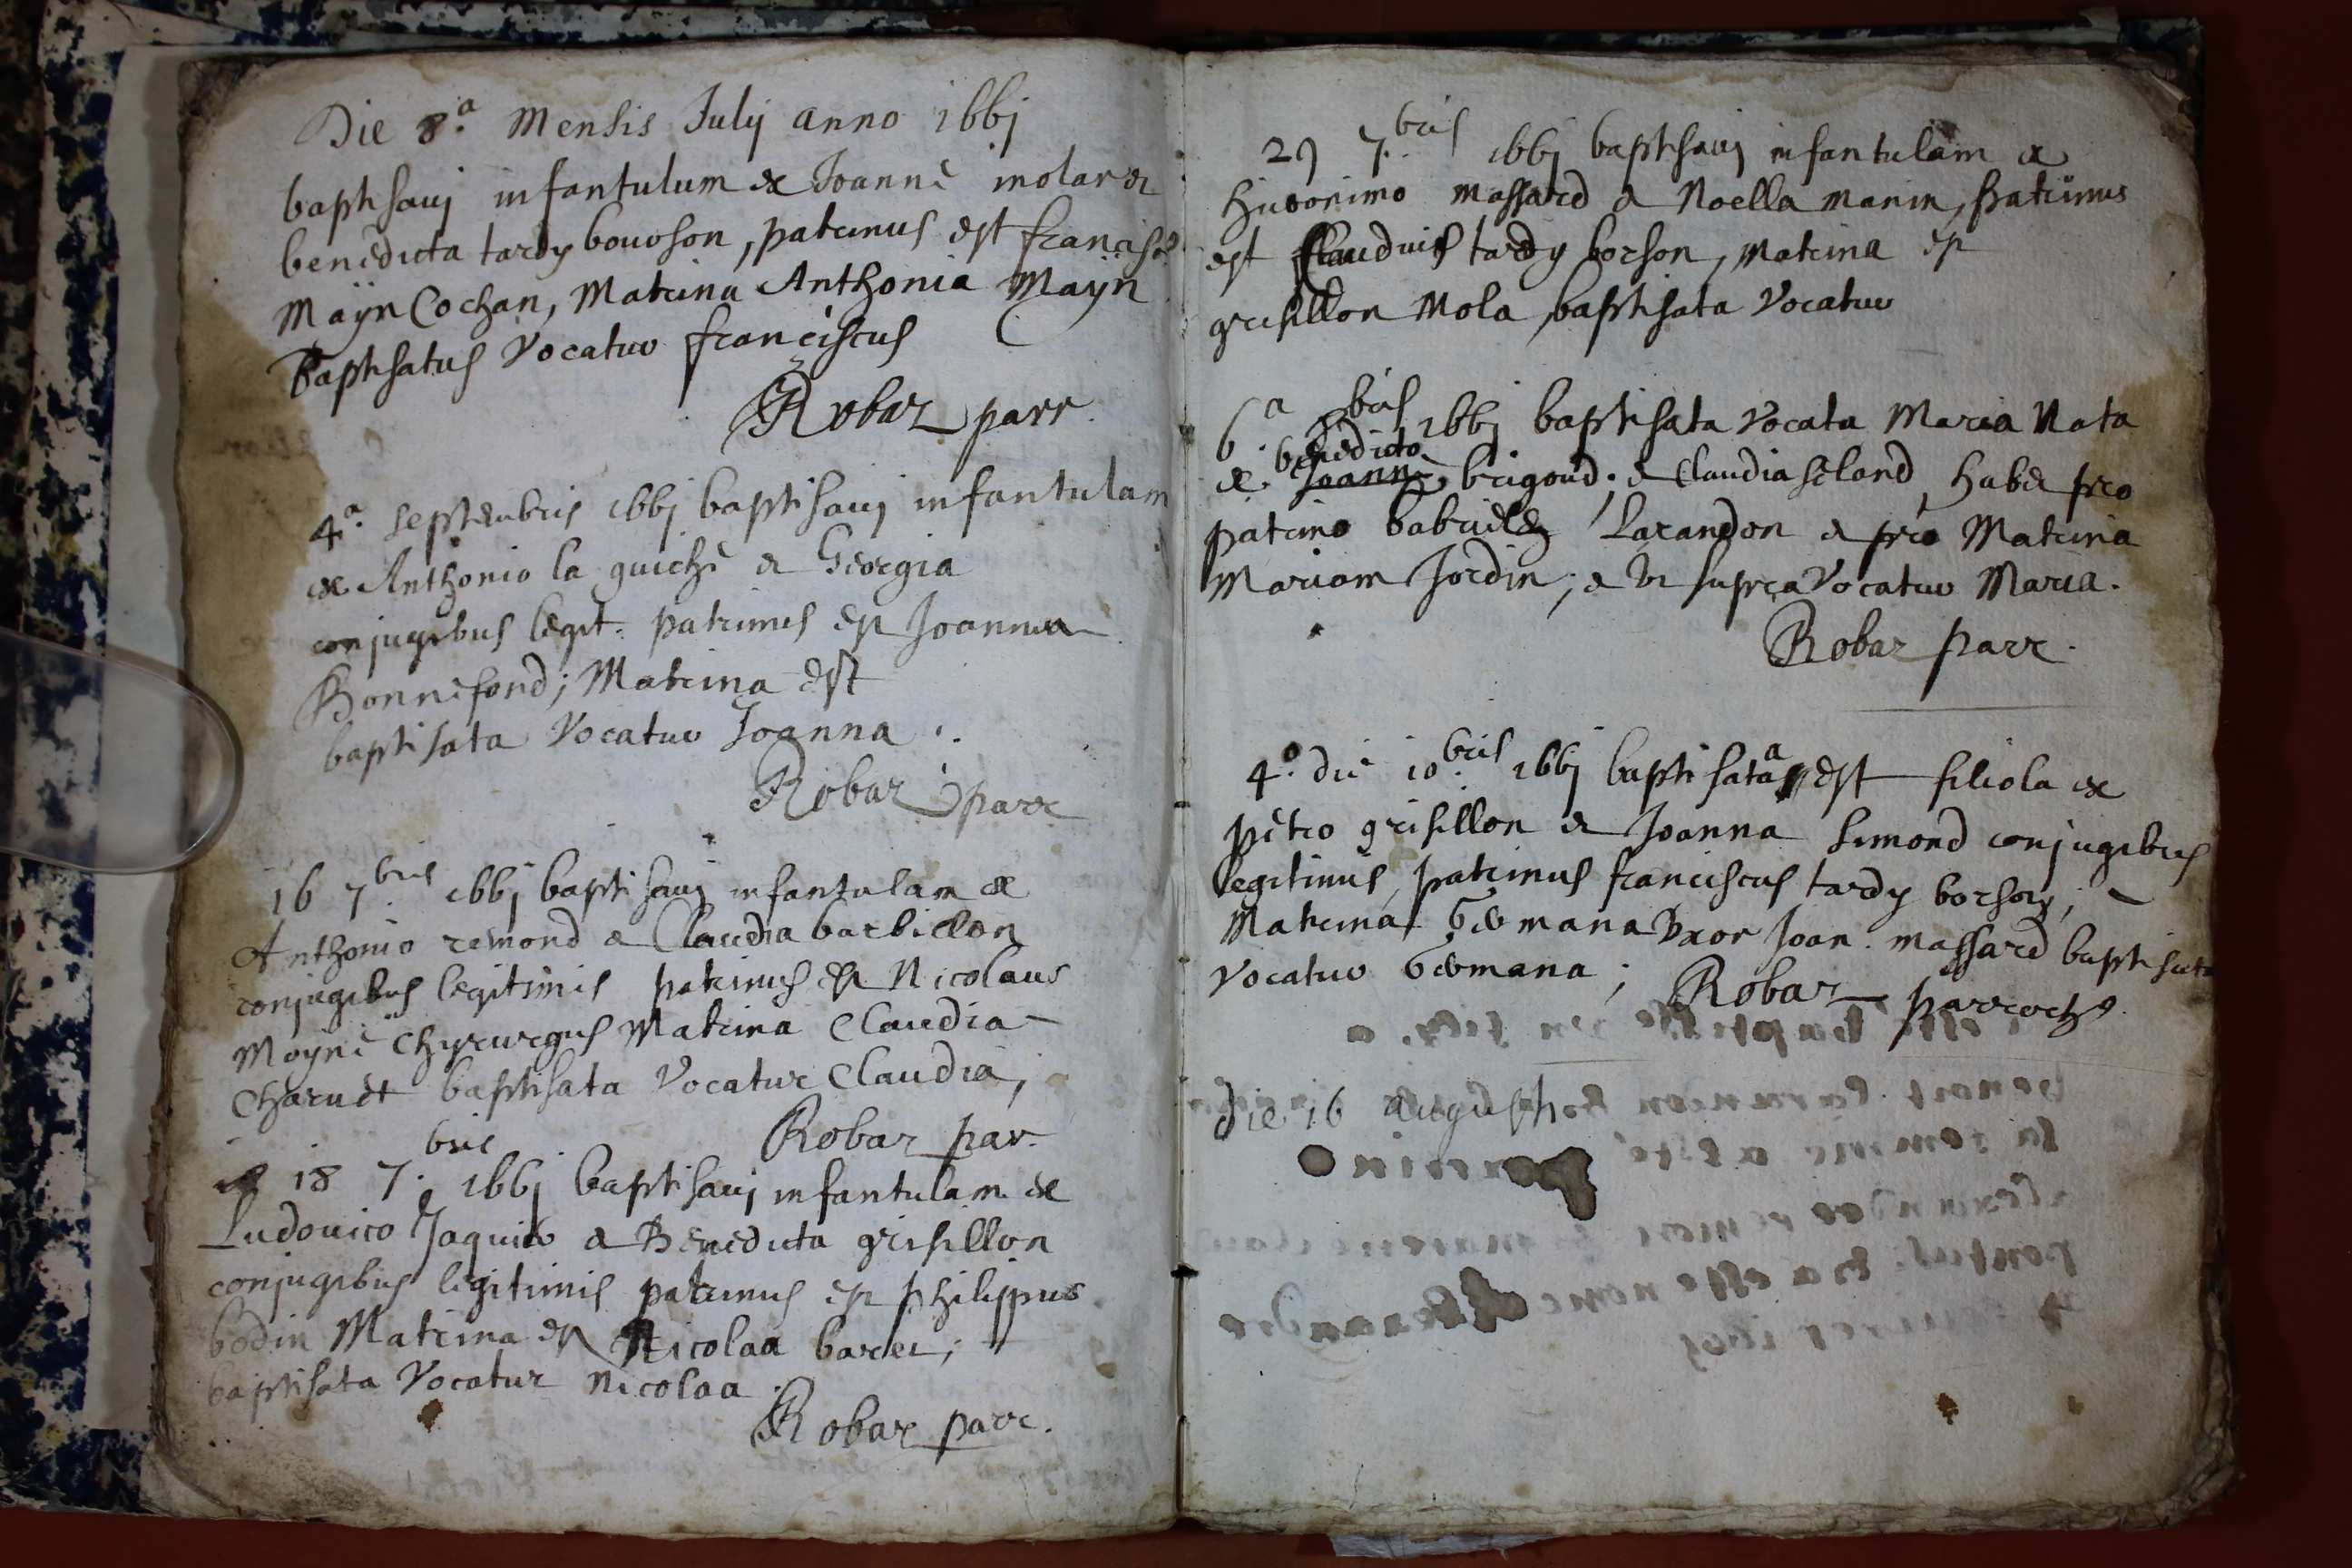 Die 8.a Mensis Julij anno 166j
baptisavj infantulum ex Joanne molar et
benedicta tardy bourson, patrinus est francisc9
Mayn Cochan, Matrina Anthonia Mayn
Baptisatus Vocatur franciscus
Robar parr.
4.a septembris 166j baptisavj infantulam
ex Anthonio la guiche et Georgia
conjugibus legit. patrinus est Joannes
Bonnefond; Matrina est
baptisata Vocatur Joanna.
Robar parr
16 7.bris 166j baptisavj infantulam ex
Anthonio remond et Claudia barbillon
conjugibus legitimis patrinus est Nicolaus
Moyne Chyrurgus Matrina Claudia
Charuet baptisata Vocatur Claudia,
Robar par.
18 7.bris 166j baptisavj infantulam ex
Ludovico Jaquier et Benedicta grisillon
conjugibus legitimis patrinus est philippus
bodin Matrina est Nicolaa baret;
baptisata Vocatur Nicolaa.
Robar parr.
29 7.bris 166j baptisavj infantulam ex
hieronimo massard et Noella manin, patrinus
est Claudius tardy borson, Matrina est
grisillon Mola, baptisata Vocatur
6.a bris 166j baptisata Vocata Maria Nata
benedicto
ex Joanne brigoud; et Claudia , habet pro
patrino Larandon et pro Matrina
Mariam Jordin; et Vt supra Vocatur Maria.
Robar parr.
4.a die 10.bris 166j baptisata est filiola ex
petro grisillon et Joanna simond conjugibus
legitimis, patrinus franciscus tardy borson;
Matrina Germana Vxor Joan. massard baptisata
Vocatur Germana; Robar parroch9.
die 16 augusti